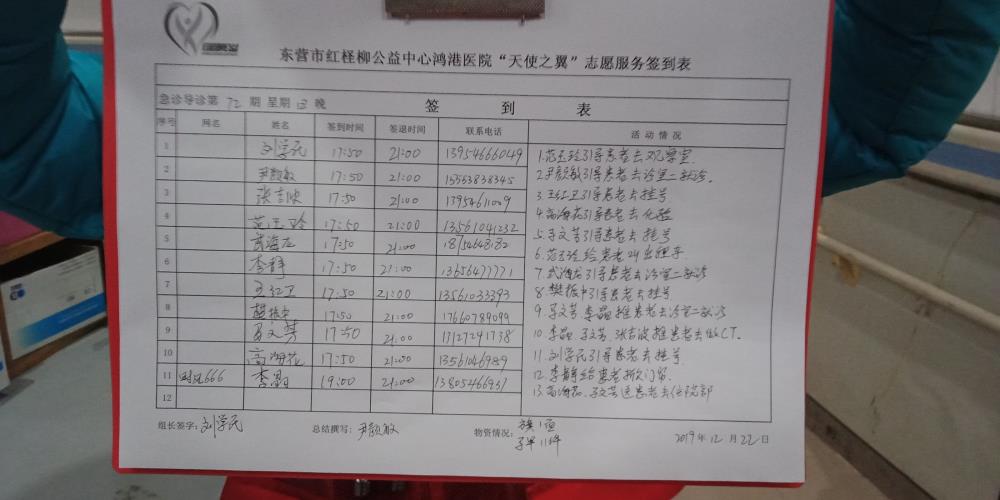 东营市红柽柳公益中心鸿港医院“天使之翼”志愿服务签到表
急诊导诊第 72 期 星期 日 晚 签 到 表
序号 网名 姓名 签到时间 签退时间 联系电话 活 动 情 况
1 刘学民 17:50 21:00 13954666049
2 尹颜敏 17:50 21:00 15553838345
3 张吉波 17:50 21:00 1395461009
4 范玉玲 17:50 21:00 13561041232
5 武海龙 17:50 21:00 18754648182
6 李静 17:50 21:00 13656477771
7 王红卫 17:50 21:00 13561033393
8 樊振中 17:50 21:00 17660789099
9 孟文芳 17:50 21:00 13127291738
10 高海花 17:50 21:00 1356104
11 666 李晶 19:00 21:00 1380546
12
1.范玉玲引导患者去观察室
2.尹颜敏引导患者去诊室二就诊.
3.王红卫引导患者去挂号
4.高海花引导患者去化验
5.文芳引导患者去挂号
6.范玉玲给患者
7.武海龙引导患者去诊室二就诊
8.樊振中引导患者去挂号
9.文芳.李晶推患者去诊室二就诊
10.李晶.文芳.张吉波推患者去做CT.
11.刘学民引导患者去挂号
12.李静给患者掀门帘.
13.高海花.文芳送患者去住院部
组长签字: 刘学民 总结撰写: 尹颜敏 物资情况: 旗1面
马甲11件
2019年12月22日